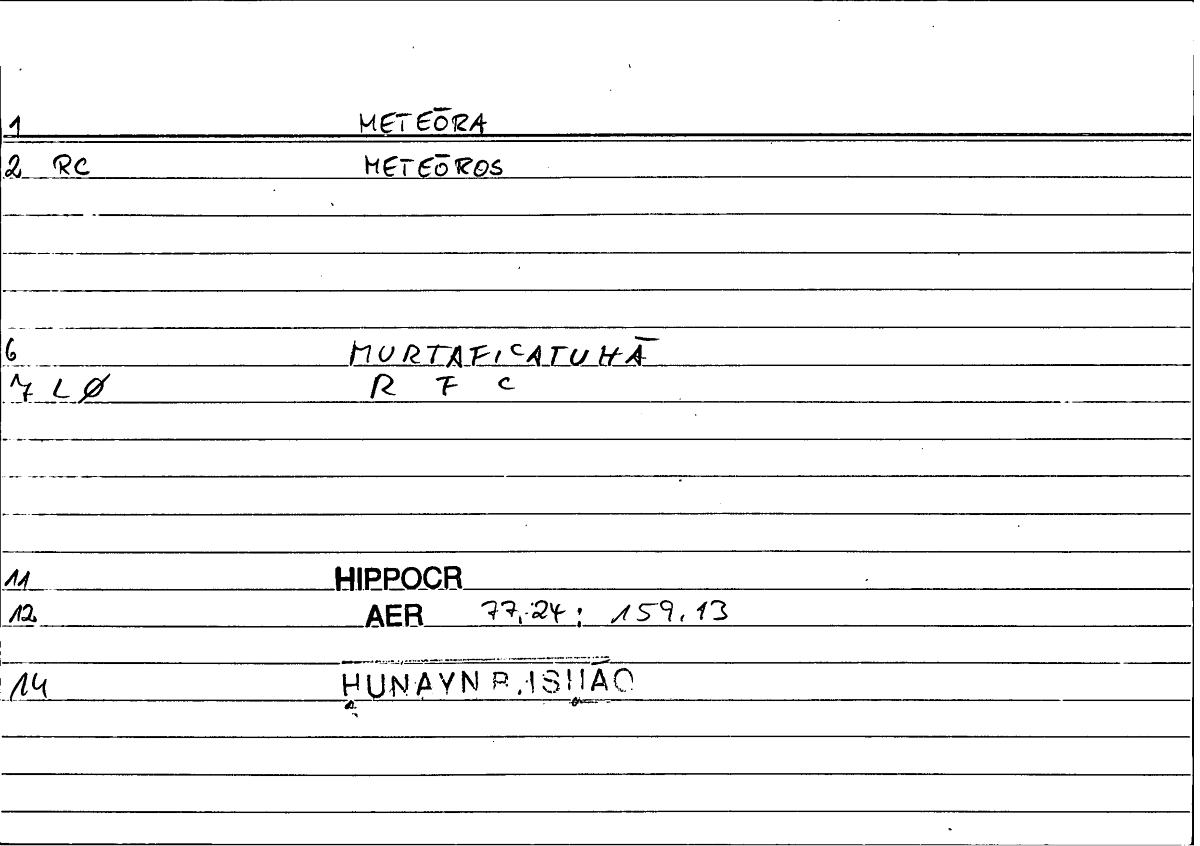 1 METEŌRA
2 RC METEŌROS
6 MURTAFIᶜATUHĀ
7 LØ R F ᶜ
11 HIPPOCR
12 AER 77,24; 159,13
14 ḤUNAYN B. ISḤĀQ